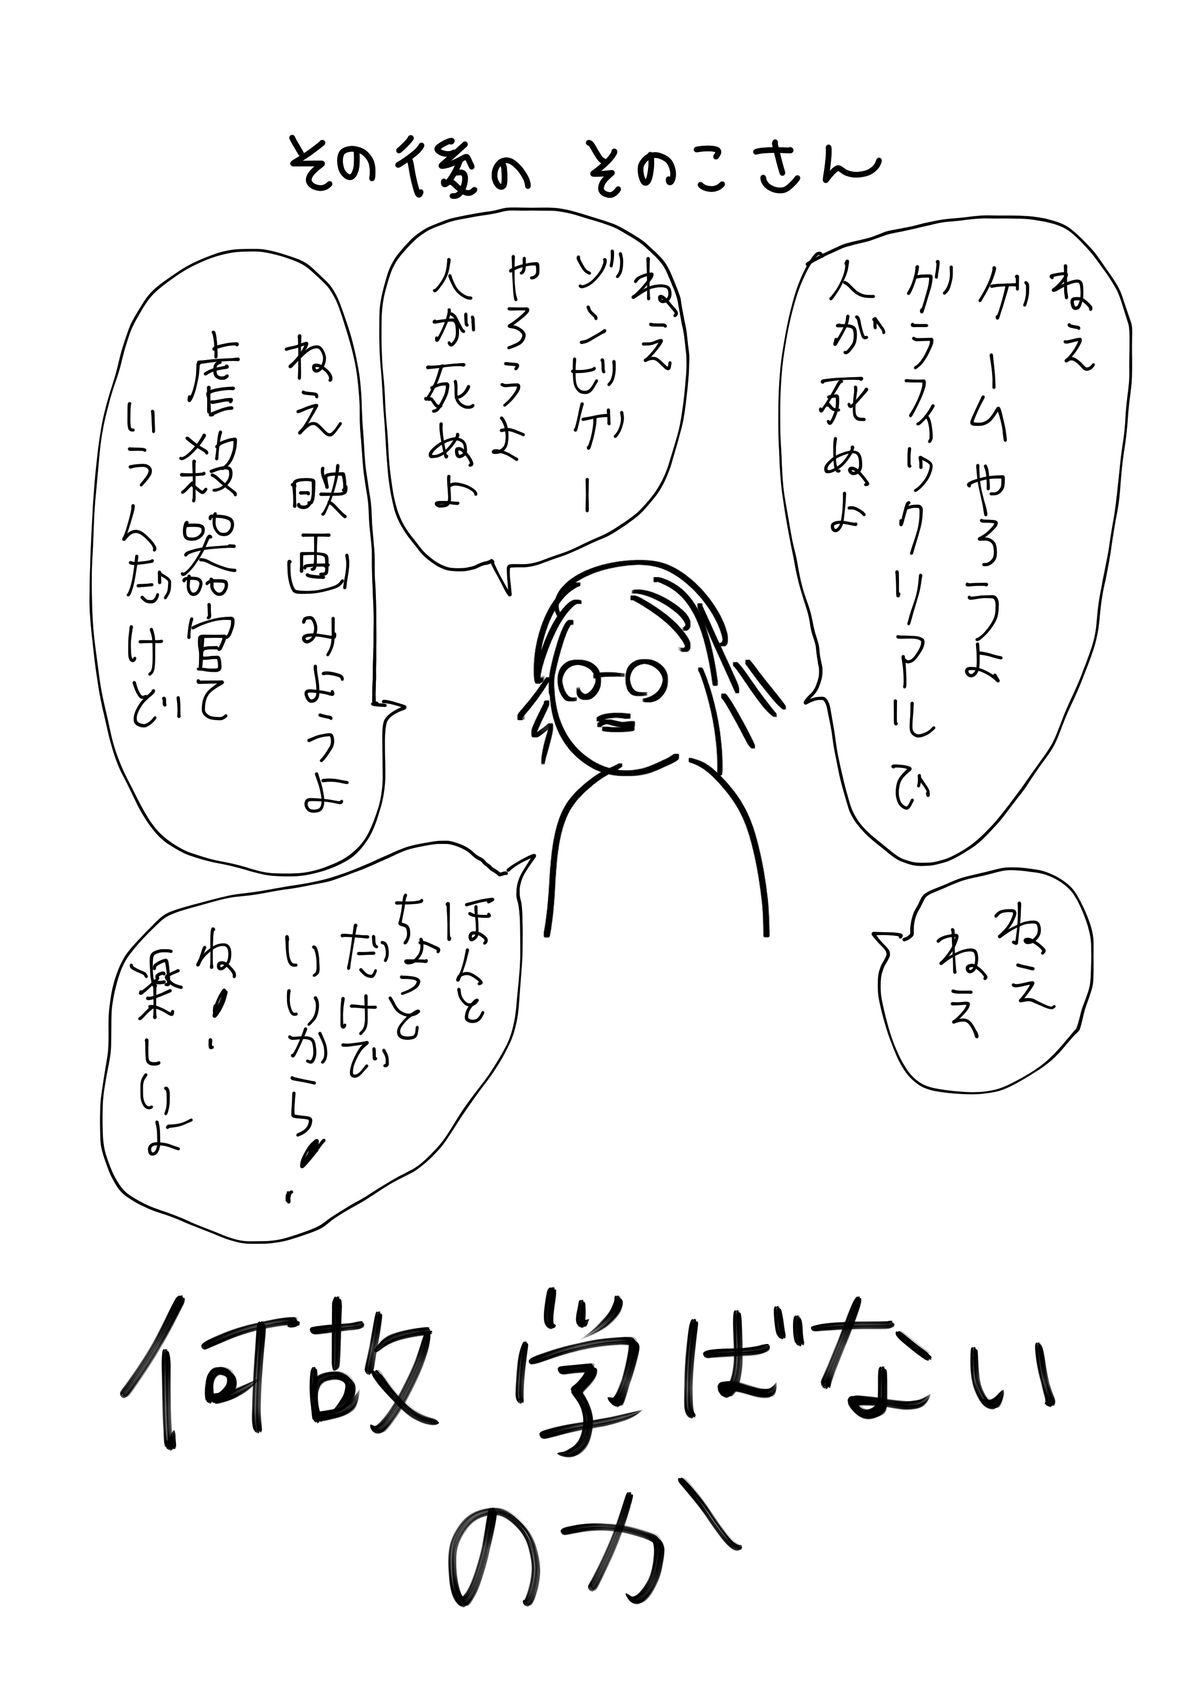 その後の そのこさん
ねえ
ゲームやろうよ
グラフィックリアルひ
人が死ぬよ
ねえ
ゾンビゲー
やろうよ
人が死ぬよ
ねえ映画みようよ
虐殺器官て
いうんだけど
ねえ
ねえ
ほんと
ちょっと
だけで
いいから！
ね！
楽しいよ
何故 学ばない
のか